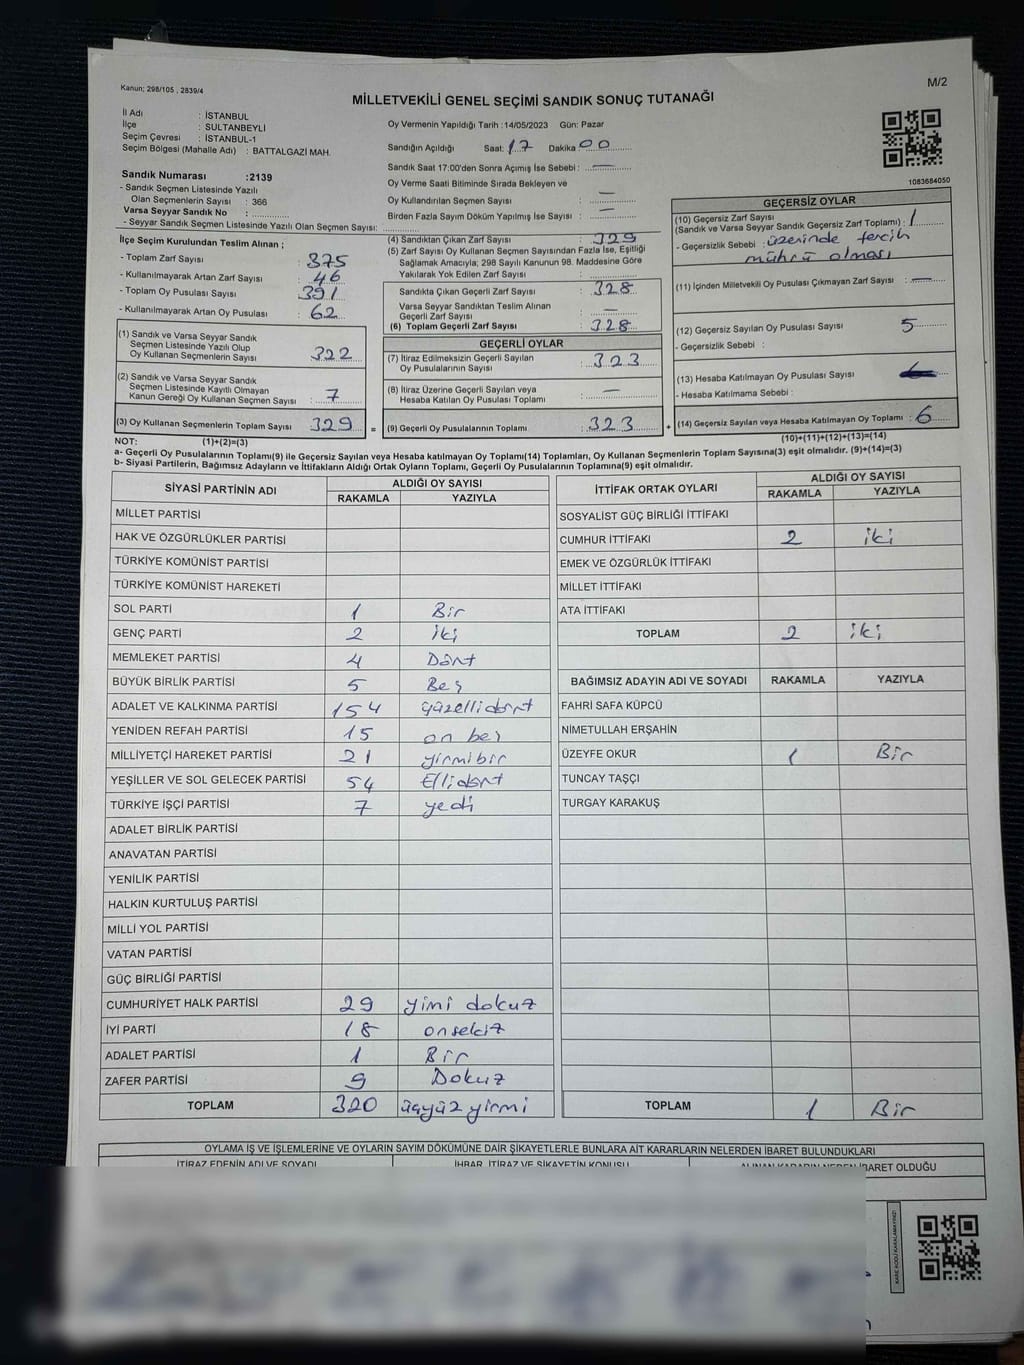 Kanun; 298/105 , 2839/4
M/2
MİLLETVEKİLİ GENEL SEÇİMİ SANDIK SONUÇ TUTANAĞI
İl Adı : İSTANBUL
İlçe : SULTANBEYLİ
Seçim Çevresi : İSTANBUL-1
Seçim Bölgesi (Mahalle Adı) : BATTALGAZİ MAH.
Sandık Numarası :2139
- Sandık Seçmen Listesinde Yazılı
Olan Seçmenlerin Sayısı : 366
Varsa Seyyar Sandık No :
- Seyyar Sandık Seçmen Listesinde Yazılı Olan Seçmen Sayısı:
İlçe Seçim Kurulundan Teslim Alınan ;
- Toplam Zarf Sayısı : 375
- Kullanılmayarak Artan Zarf Sayısı : 46
- Toplam Oy Pusulası Sayısı : 391
- Kullanılmayarak Artan Oy Pusulası : 62
(1) Sandık ve Varsa Seyyar Sandık
Seçmen Listesinde Yazılı Olup
Oy Kullanan Seçmenlerin Sayısı : 322
(2) Sandık ve Varsa Seyyar Sandık
Seçmen Listesinde Kayıtlı Olmayan
Kanun Gereği Oy Kullanan Seçmen Sayısı : 7
(3) Oy Kullanan Seçmenlerin Toplam Sayısı : 329 =
Oy Vermenin Yapıldığı Tarih :14/05/2023 Gün: Pazar
Sandığın Açıldığı Saat: 17 Dakika 00
Sandık Saat 17:00'den Sonra Açımış İse Sebebi : —
Oy Verme Saati Bitiminde Sırada Bekleyen ve
Oy Kullandırılan Seçmen Sayısı : —
Birden Fazla Sayım Döküm Yapılmış İse Sayısı : —
(4) Sandıktan Çıkan Zarf Sayısı : 329
(5) Zarf Sayısı Oy Kullanan Seçmen Sayısından Fazla İse, Eşitliği
Sağlamak Amacıyla; 298 Sayılı Kanunun 98. Maddesine Göre
Yakılarak Yok Edilen Zarf Sayısı :
Sandıkta Çıkan Geçerli Zarf Sayısı : 328
Varsa Seyyar Sandıktan Teslim Alınan
Geçerli Zarf Sayısı : —
(6) Toplam Geçerli Zarf Sayısı : 328
GEÇERLİ OYLAR
(7) İtiraz Edilmeksizin Geçerli Sayılan
Oy Pusulalarının Sayısı : 323
(8) İtiraz Üzerine Geçerli Sayılan veya
Hesaba Katılan Oy Pusulası Toplamı : —
(9) Geçerli Oy Pusulalarının Toplamı : 323 +
1083684050
GEÇERSİZ OYLAR
(10) Geçersiz Zarf Sayısı
(Sandık ve Varsa Seyyar Sandık Geçersiz Zarf Toplamı) : 1
- Geçersizlik Sebebi : üzerinde tercih
mührü olması
(11) İçinden Milletvekili Oy Pusulası Çıkmayan Zarf Sayısı : —
(12) Geçersiz Sayılan Oy Pusulası Sayısı : 5
- Geçersizlik Sebebi :
(13) Hesaba Katılmayan Oy Pusulası Sayısı :
- Hesaba Katılmama Sebebi :
(14) Geçersiz Sayılan veya Hesaba Katılmayan Oy Toplamı : 6
NOT: (1)+(2)=(3)
(10)+(11)+(12)+(13)=(14)
a- Geçerli Oy Pusulalarının Toplamı(9) ile Geçersiz Sayılan veya Hesaba katılmayan Oy Toplamı(14) Toplamları, Oy Kullanan Seçmenlerin Toplam Sayısına(3) eşit olmalıdır. (9)+(14)=(3)
b- Siyasi Partilerin, Bağımsız Adayların ve İttifakların Aldığı Ortak Oyların Toplamı, Geçerli Oy Pusulalarının Toplamına(9) eşit olmalıdır.
SİYASİ PARTİNİN ADI ALDIĞI OY SAYISI
RAKAMLA YAZIYLA
MİLLET PARTİSİ
HAK VE ÖZGÜRLÜKLER PARTİSİ
TÜRKİYE KOMÜNİST PARTİSİ
TÜRKİYE KOMÜNİST HAREKETİ
SOL PARTİ 1 Bir
GENÇ PARTİ 2 iki
MEMLEKET PARTİSİ 4 Dört
BÜYÜK BİRLİK PARTİSİ 5 Beş
ADALET VE KALKINMA PARTİSİ 154 yüzellidört
YENİDEN REFAH PARTİSİ 15 on beş
MİLLİYETÇİ HAREKET PARTİSİ 21 yirmibir
YEŞİLLER VE SOL GELECEK PARTİSİ 54 Ellidört
TÜRKİYE İŞÇİ PARTİSİ 7 yedi
ADALET BİRLİK PARTİSİ
ANAVATAN PARTİSİ
YENİLİK PARTİSİ
HALKIN KURTULUŞ PARTİSİ
MİLLİ YOL PARTİSİ
VATAN PARTİSİ
GÜÇ BİRLİĞİ PARTİSİ
CUMHURİYET HALK PARTİSİ 29 yimi dokuz
İYİ PARTİ 18 onsekiz
ADALET PARTİSİ 1 Bir
ZAFER PARTİSİ 9 Dokuz
TOPLAM 320 üçyüz yirmi
İTTİFAK ORTAK OYLARI ALDIĞI OY SAYISI
RAKAMLA YAZIYLA
SOSYALİST GÜÇ BİRLİĞİ İTTİFAKI
CUMHUR İTTİFAKI 2 iki
EMEK VE ÖZGÜRLÜK İTTİFAKI
MİLLET İTTİFAKI
ATA İTTİFAKI
TOPLAM 2 iki
BAĞIMSIZ ADAYIN ADI VE SOYADI RAKAMLA YAZIYLA
FAHRİ SAFA KÜPCÜ
NİMETULLAH ERŞAHİN
ÜZEYFE OKUR 1 Bir
TUNCAY TAŞÇI
TURGAY KARAKUŞ
TOPLAM 1 Bir
OYLAMA İŞ VE İŞLEMLERİNE VE OYLARIN SAYIM DÖKÜMÜNE DAİR ŞİKAYETLERLE BUNLARA AİT KARARLARIN NELERDEN İBARET BULUNDUKLARI
İTİRAZ EDENİN ADI VE SOYADI İHBAR, İTİRAZ VE ŞİKAYETİN KONUSU ALINAN KARARIN NEDEN İBARET OLDUĞU
KARE KODU KARALAMAYINIZ!